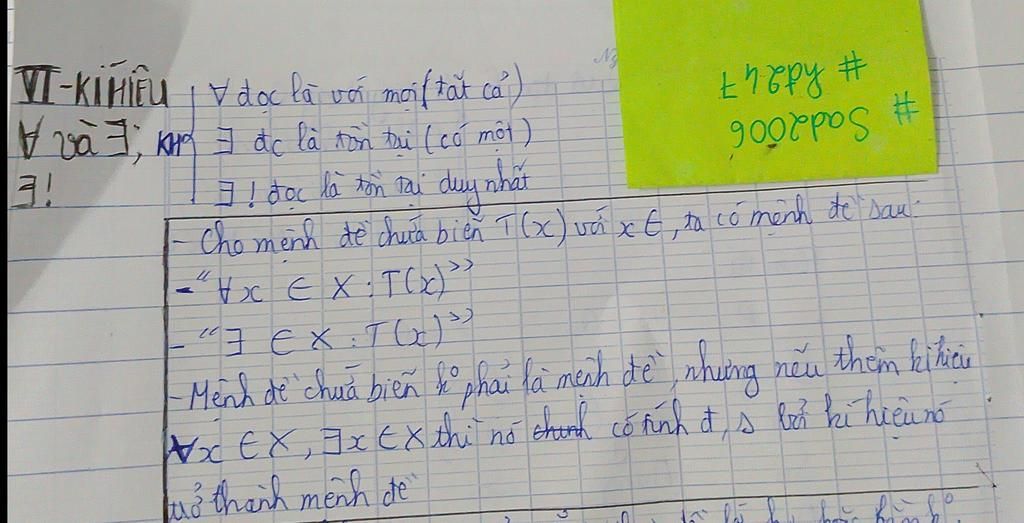 VI-KÍ HIỆU
∀ và ∃,
∃!
∀ đọc là với mọi (tất cả)
∃ đc là tồn tại (có một)
∃! đọc là tồn tại duy nhất
# Sad2006
# hd247
- Cho mệnh đề chứa biến T(x) với x ∈, ta có mệnh đề sau:
- “∀x ∈ X : T(x)”
- “∃ ∈ X : T(x)”
- Mệnh đề chứa biến ko phải là mệnh đề, nhưng nếu thêm kí hiệu
∀x ∈ X, ∃x ∈ X thì nó có tính đ, s bởi kí hiệu nó
trở thành mệnh đề